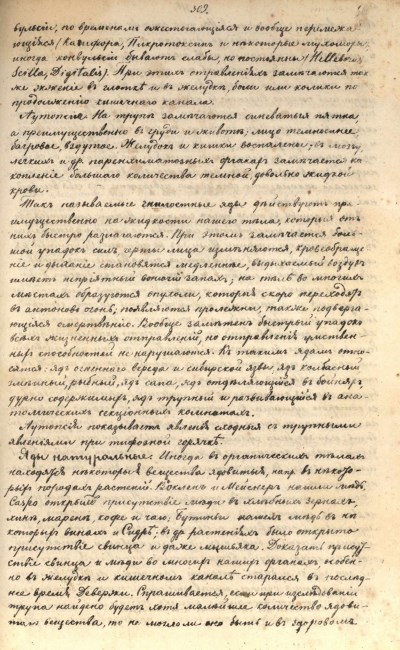 302.
бульсіи, по временамъ ожесточающіяся и вообще перемежа
ющіяся (Камфора, Пикротоксинъ и некоторые мухоморы)
иногда конвульсіи бываютъ слабы, но постоянны (Hellebor.
Scilla, Digitalis). При этихъ отравленіяхъ замечаются так
же жженіе въ глотке и въ желудке, боли или колики по
продолженію кишечнаго канала.
Аутопсія На трупе замечаются синеватыя пятна,
а преимущественно въ груди и животе; лицо темносинее,
багровое, вздутое. Желудокъ и кишки воспалены; въ мозгу,
легкихъ и др. паренхиматозныхъ органахъ замечается на
копленіе большаго количества темной довольно жидкой
крови.
Такъ называемые гнилостные яды действуютъ пре
имущественно на жидкости нашего тела, которыя отъ
нихъ быстро разлагаются. При этомъ замечается боль
шой упадокъ силъ, черты лица изменяются, кровообраще
ніе и дыханіе становятся медленные, выдыхаемый воздухъ
имеетъ непріятный вонючій запахъ; на теле во многихъ
местахъ образуются опухоли, которыя скоро переходятъ
въ антоновъ огонь; появляются пролежни, также подверга
ющіяся омертвенію. Вообще заметенъ быстрый упадокъ
всехъ жизненныхъ отправленій, но отправленія умствен
ныхъ способностей не нарушаются. Къ такимъ ядамъ отно
сятся: ядъ огненнаго вереда и сибирской язвы, ядъ колбасный
змеиный, рыбный, ядъ сапа, ядъ отделяющійся въ бойняхъ,
дурно содержимыхъ, ядъ трупный и развивающійся въ ана
томическихъ секціонныхъ комнатахъ.
Аутопсія показываетъ явленія сходныя съ трупными
явленіями при тифозной горячке.
Яды натуральные. Иногда въ органическихъ телахъ
находятся некоторыя вещества ядовитыя, напр. въ некото
рыхъ породахъ растеній. и Мейснеръ нашли медь,
открылъ присутствіе меди въ хлебныхъ зернахъ,
хине, марене, кофе и чаю; Бутиньи нашелъ медь въ не
которыхъ винахъ и Сидре; въ др. растеніяхъ было открыто
присутствіе свинца и даже мышьяка. Доказать присут
ствіе свинца и меди во многихъ нашихъ органахъ, особен
но въ желудке и кишечномъ канале старался въ послед
нее время Девержи. Спрашивается, если при изследованіи
трупа найдено будетъ хотя малейшее количество ядови
таго вещества, то не могло ли оно быть и въ здоровомъ